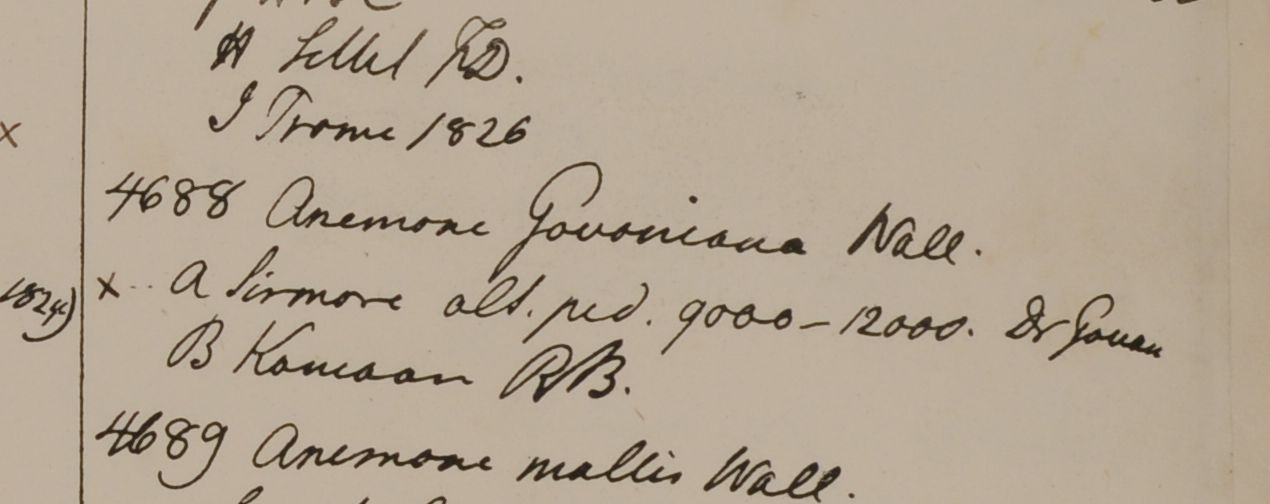 H Sillet F.D.
I Prome 1826
4688 Anemone Govaniana Wall.
x A Sirmore alt. ped. 9000-12000. Dr Govan
1824)
B Kamaon RB.
4689 Anemone mollis Wall.